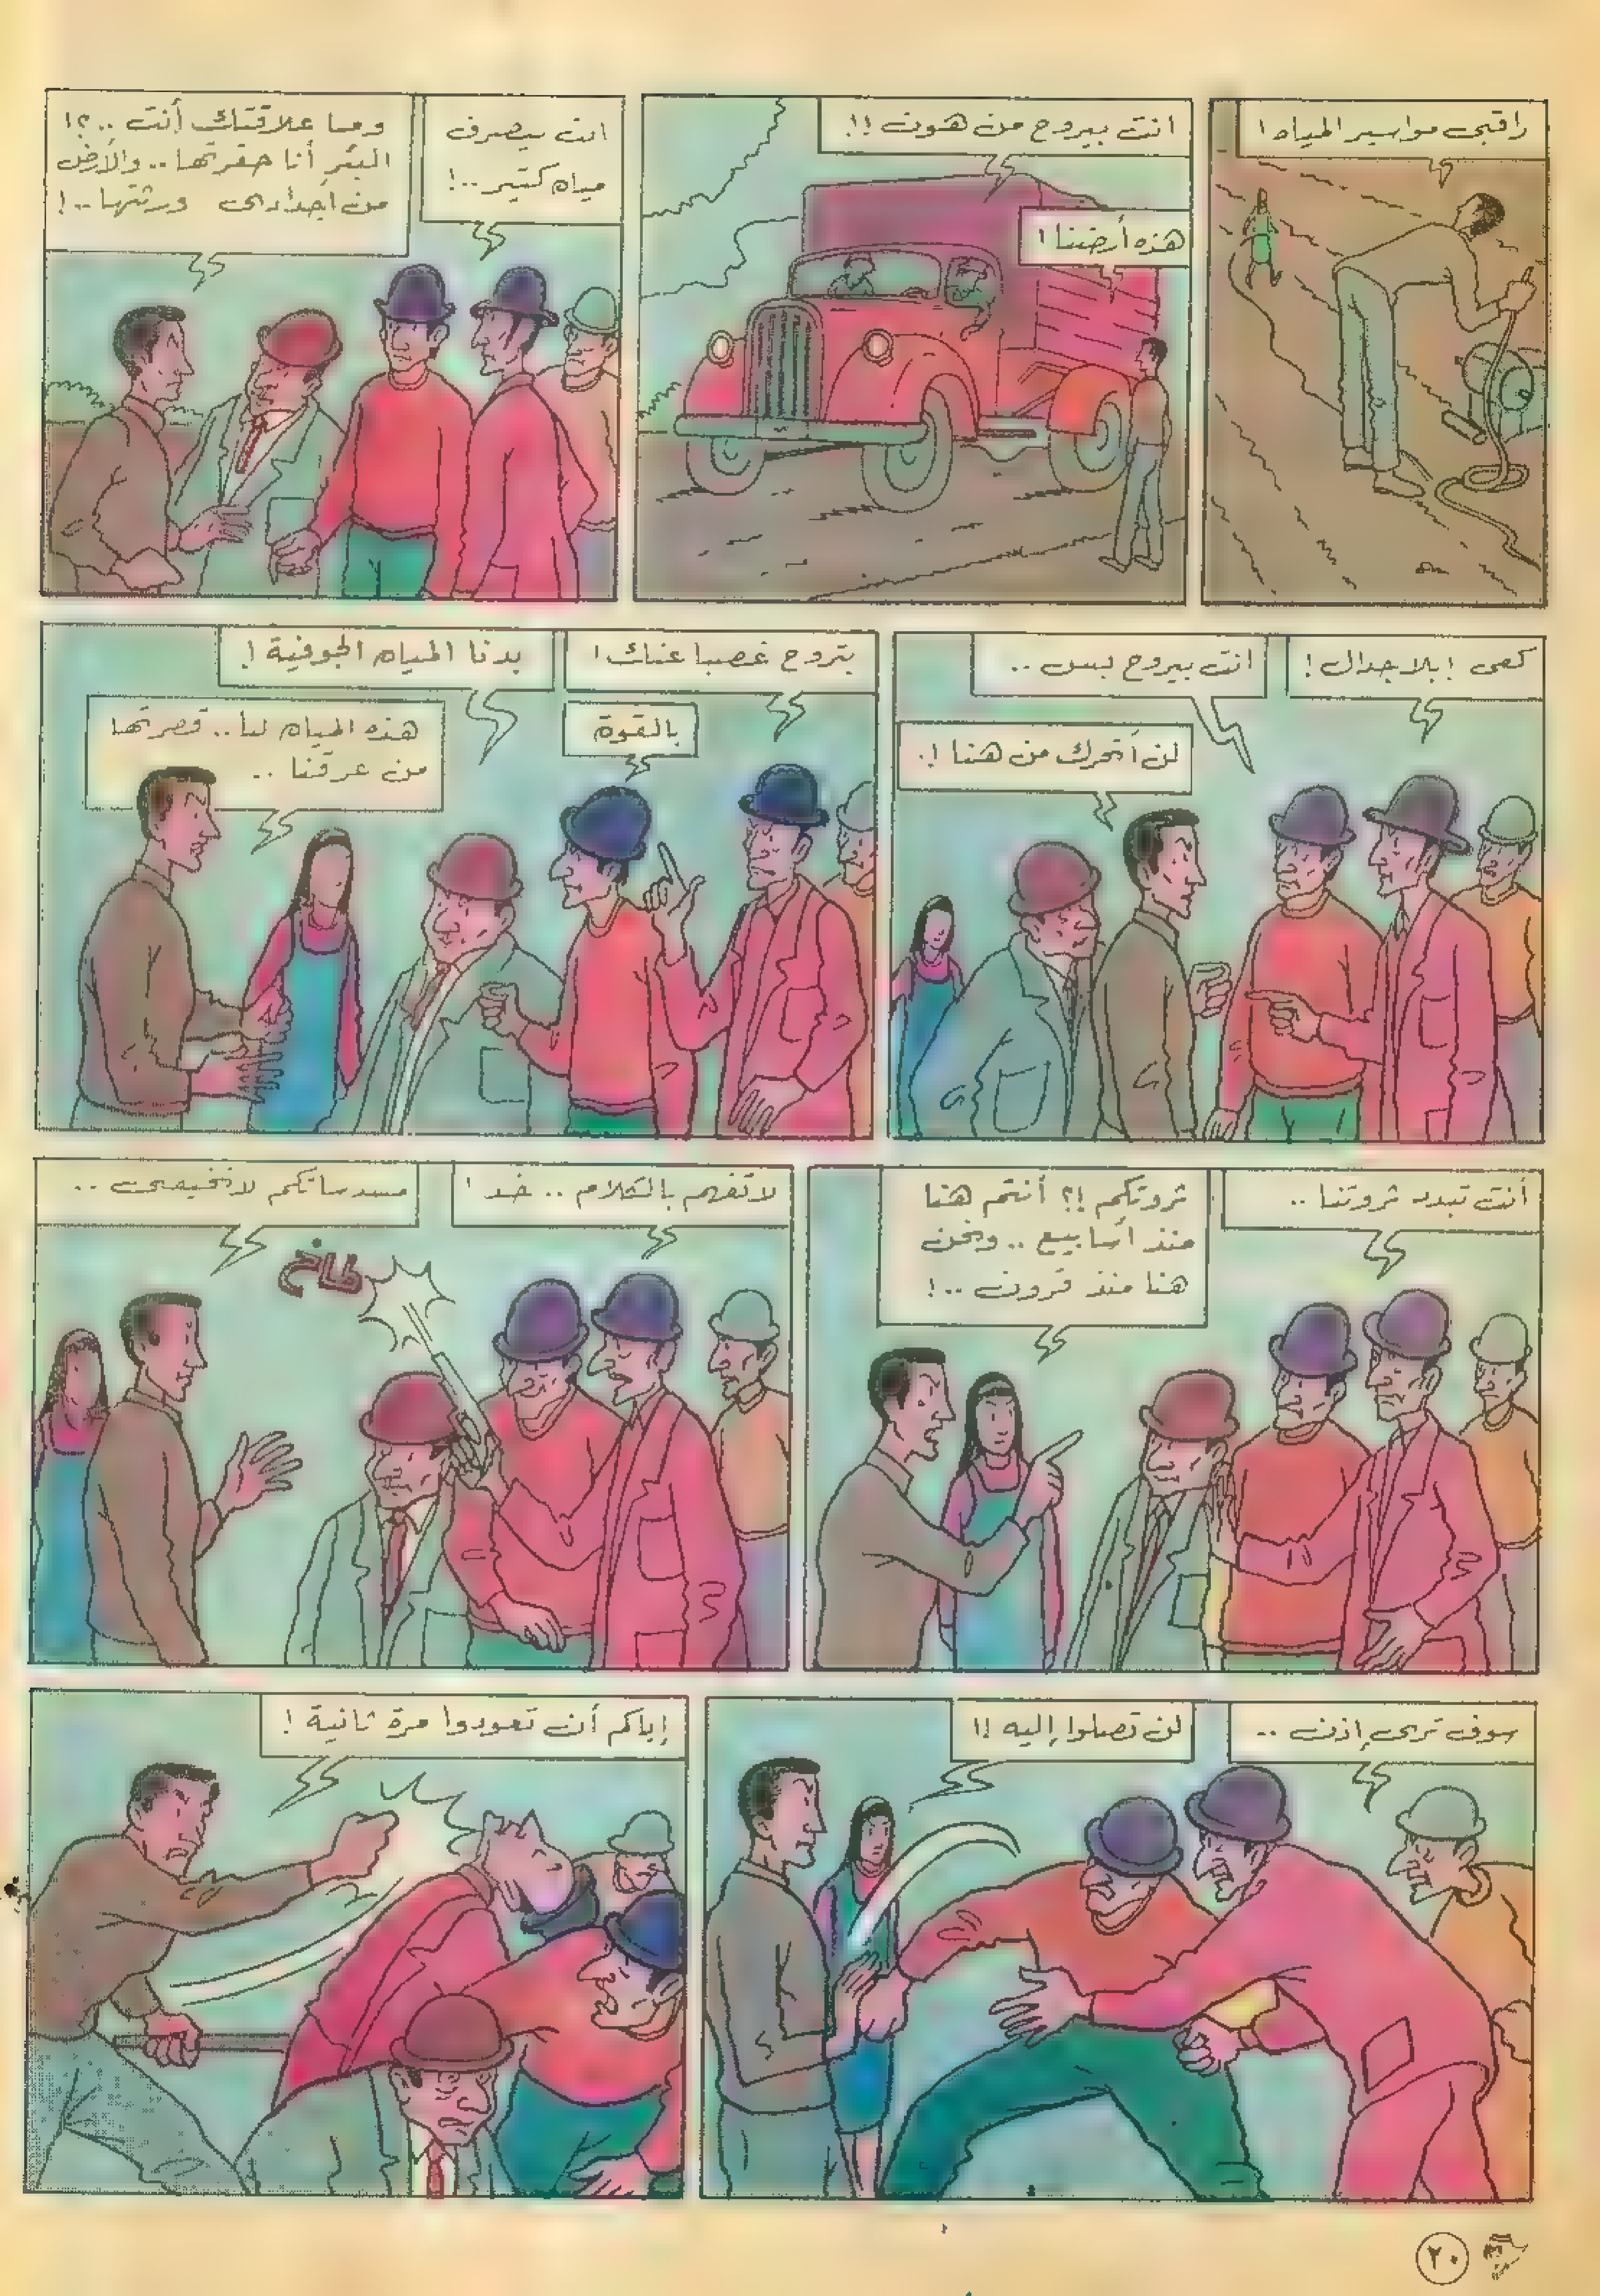 راقبى مواسير المياه!
انت بيروح من هون!!
هذه أرضنا!
انت بيصرف
مياه كتير..!
وما علاقتك أنت ..؟!
البئر أنا حفرتها.. والأرض
من أجدادى ورثتها..!
كفى! بلا جدال!
انت بيروح بس ..
لن أتحرك من هنا!.
بتروح غصبا عنك!
بالقوة
بدنا المياه الجوفية!
هذه المياه لنا..
من عرقنا ..
أنت تبدد ثروتنا ..
ثروتكم!؟ أنتم هنا
منذ أسابيع .. ونحن
هنا منذ قرون ..!
لا تفهم بالكلام .. خد!
طاخ
مسدساتكم لا تخيفنى ..
سوف ترى إذن ..
لن تصلوا إليه!!
إياكم أن تعودوا مرة ثانية!
٢٠